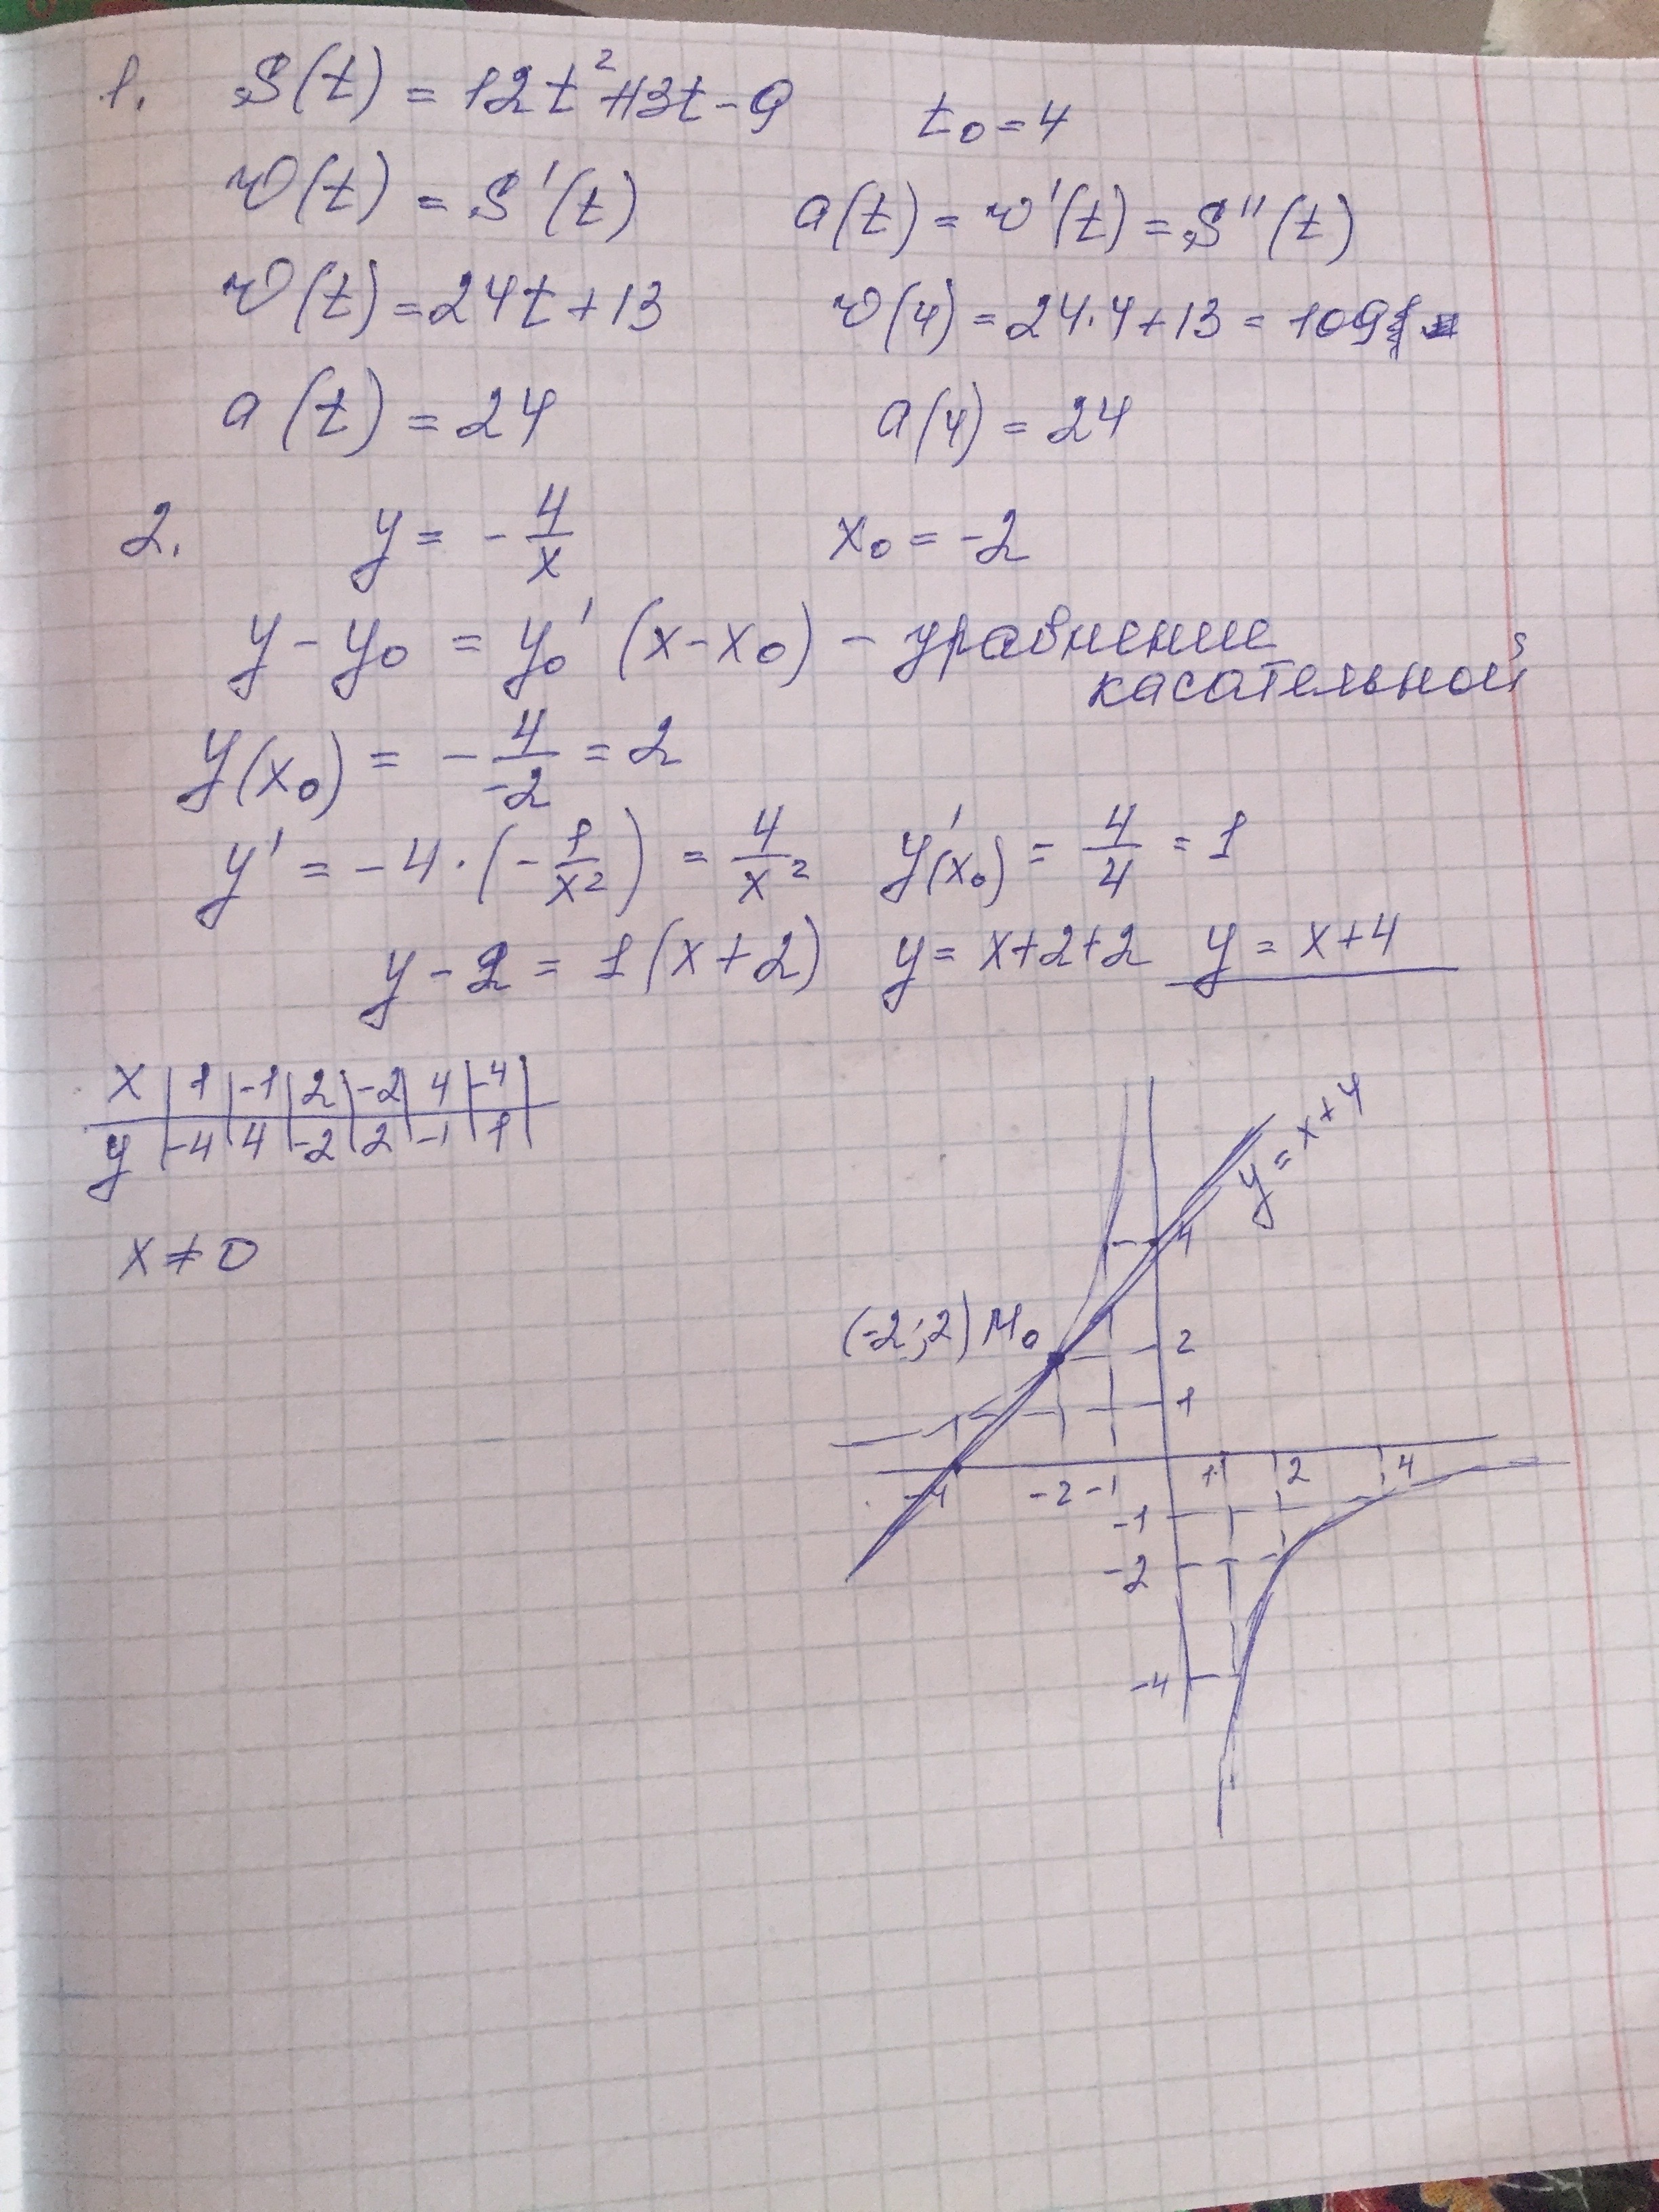 1. S(t) = 12t² + 13t - 9 t₀ = 4
v(t) = S'(t) a(t) = v'(t) = S''(t)
v(t) = 24t + 13 v(4) = 24·4 + 13 = 109
a(t) = 24 a(4) = 24
2. y = -4/x x₀ = -2
y - y₀ = y₀' (x - x₀) - уравнение
касательной
y(x₀) = -4/-2 = 2
y' = -4·(-1/x²) = 4/x² y'(x₀) = 4/4 = 1
y - 2 = 1(x+2) y = x+2+2 y = x+4
x | 1 | -1 | 2 | -2 | 4 | -4 |
y | -4 | 4 | -2 | 2 | -1 | 1 |
x ≠ 0
y = x+4
4
(-2;2) M₀
2
1
-4 -2 -1 1 2 4
-1
-2
-4